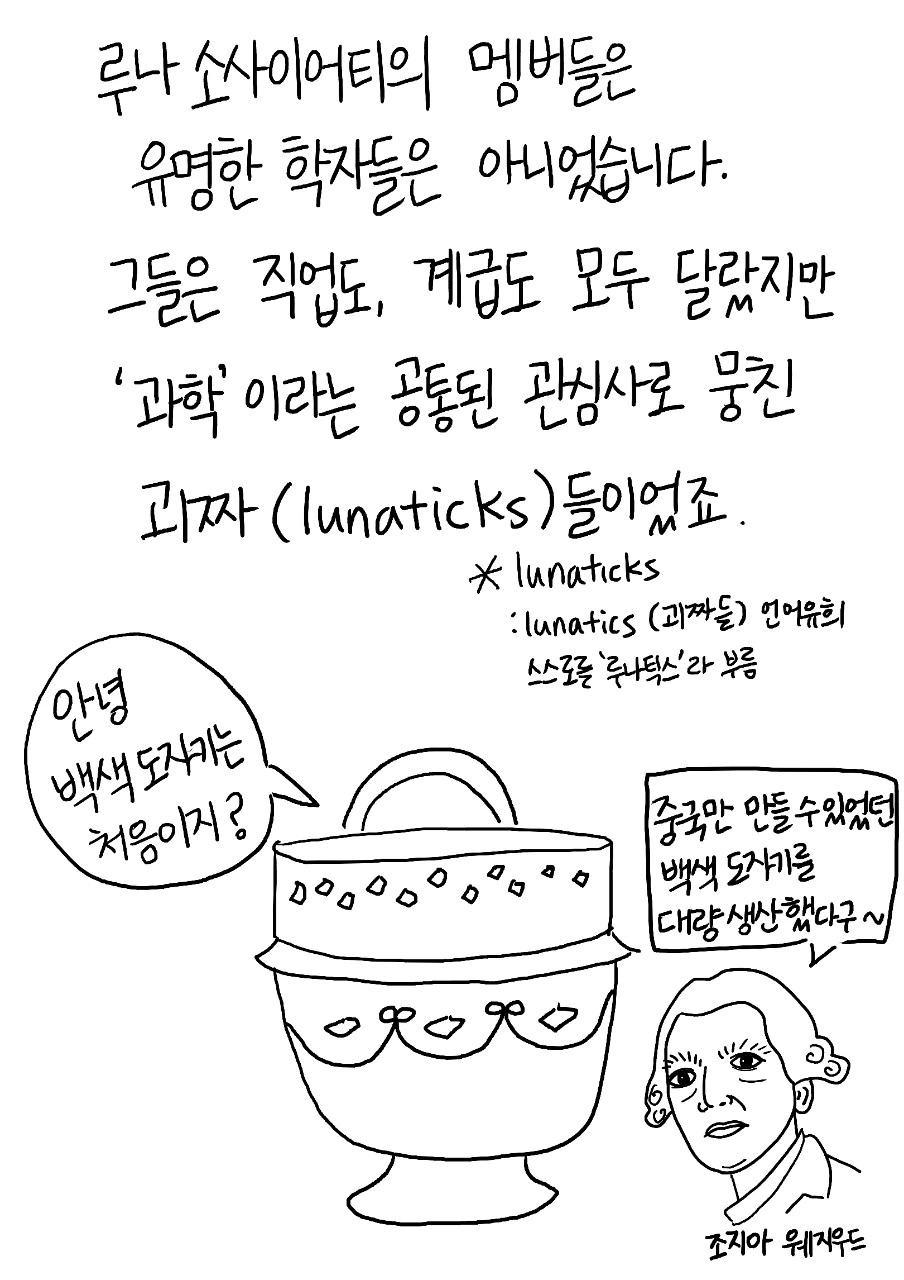 루나 소사이어티의 멤버들은
유명한 학자들은 아니었습니다.
그들은 직업도, 계급도 모두 달랐지만
'과학'이라는 공통된 관심사로 뭉친
괴짜(lunaticks)들이었죠.
* lunaticks
: lunatics (괴짜들) 언어유희
스스로를 '루나틱스'라 부름
안녕
백색 도자기는
처음이지?
중국만 만들 수 있었던
백색 도자기를
대량 생산했다구~
조지아 웨지우드